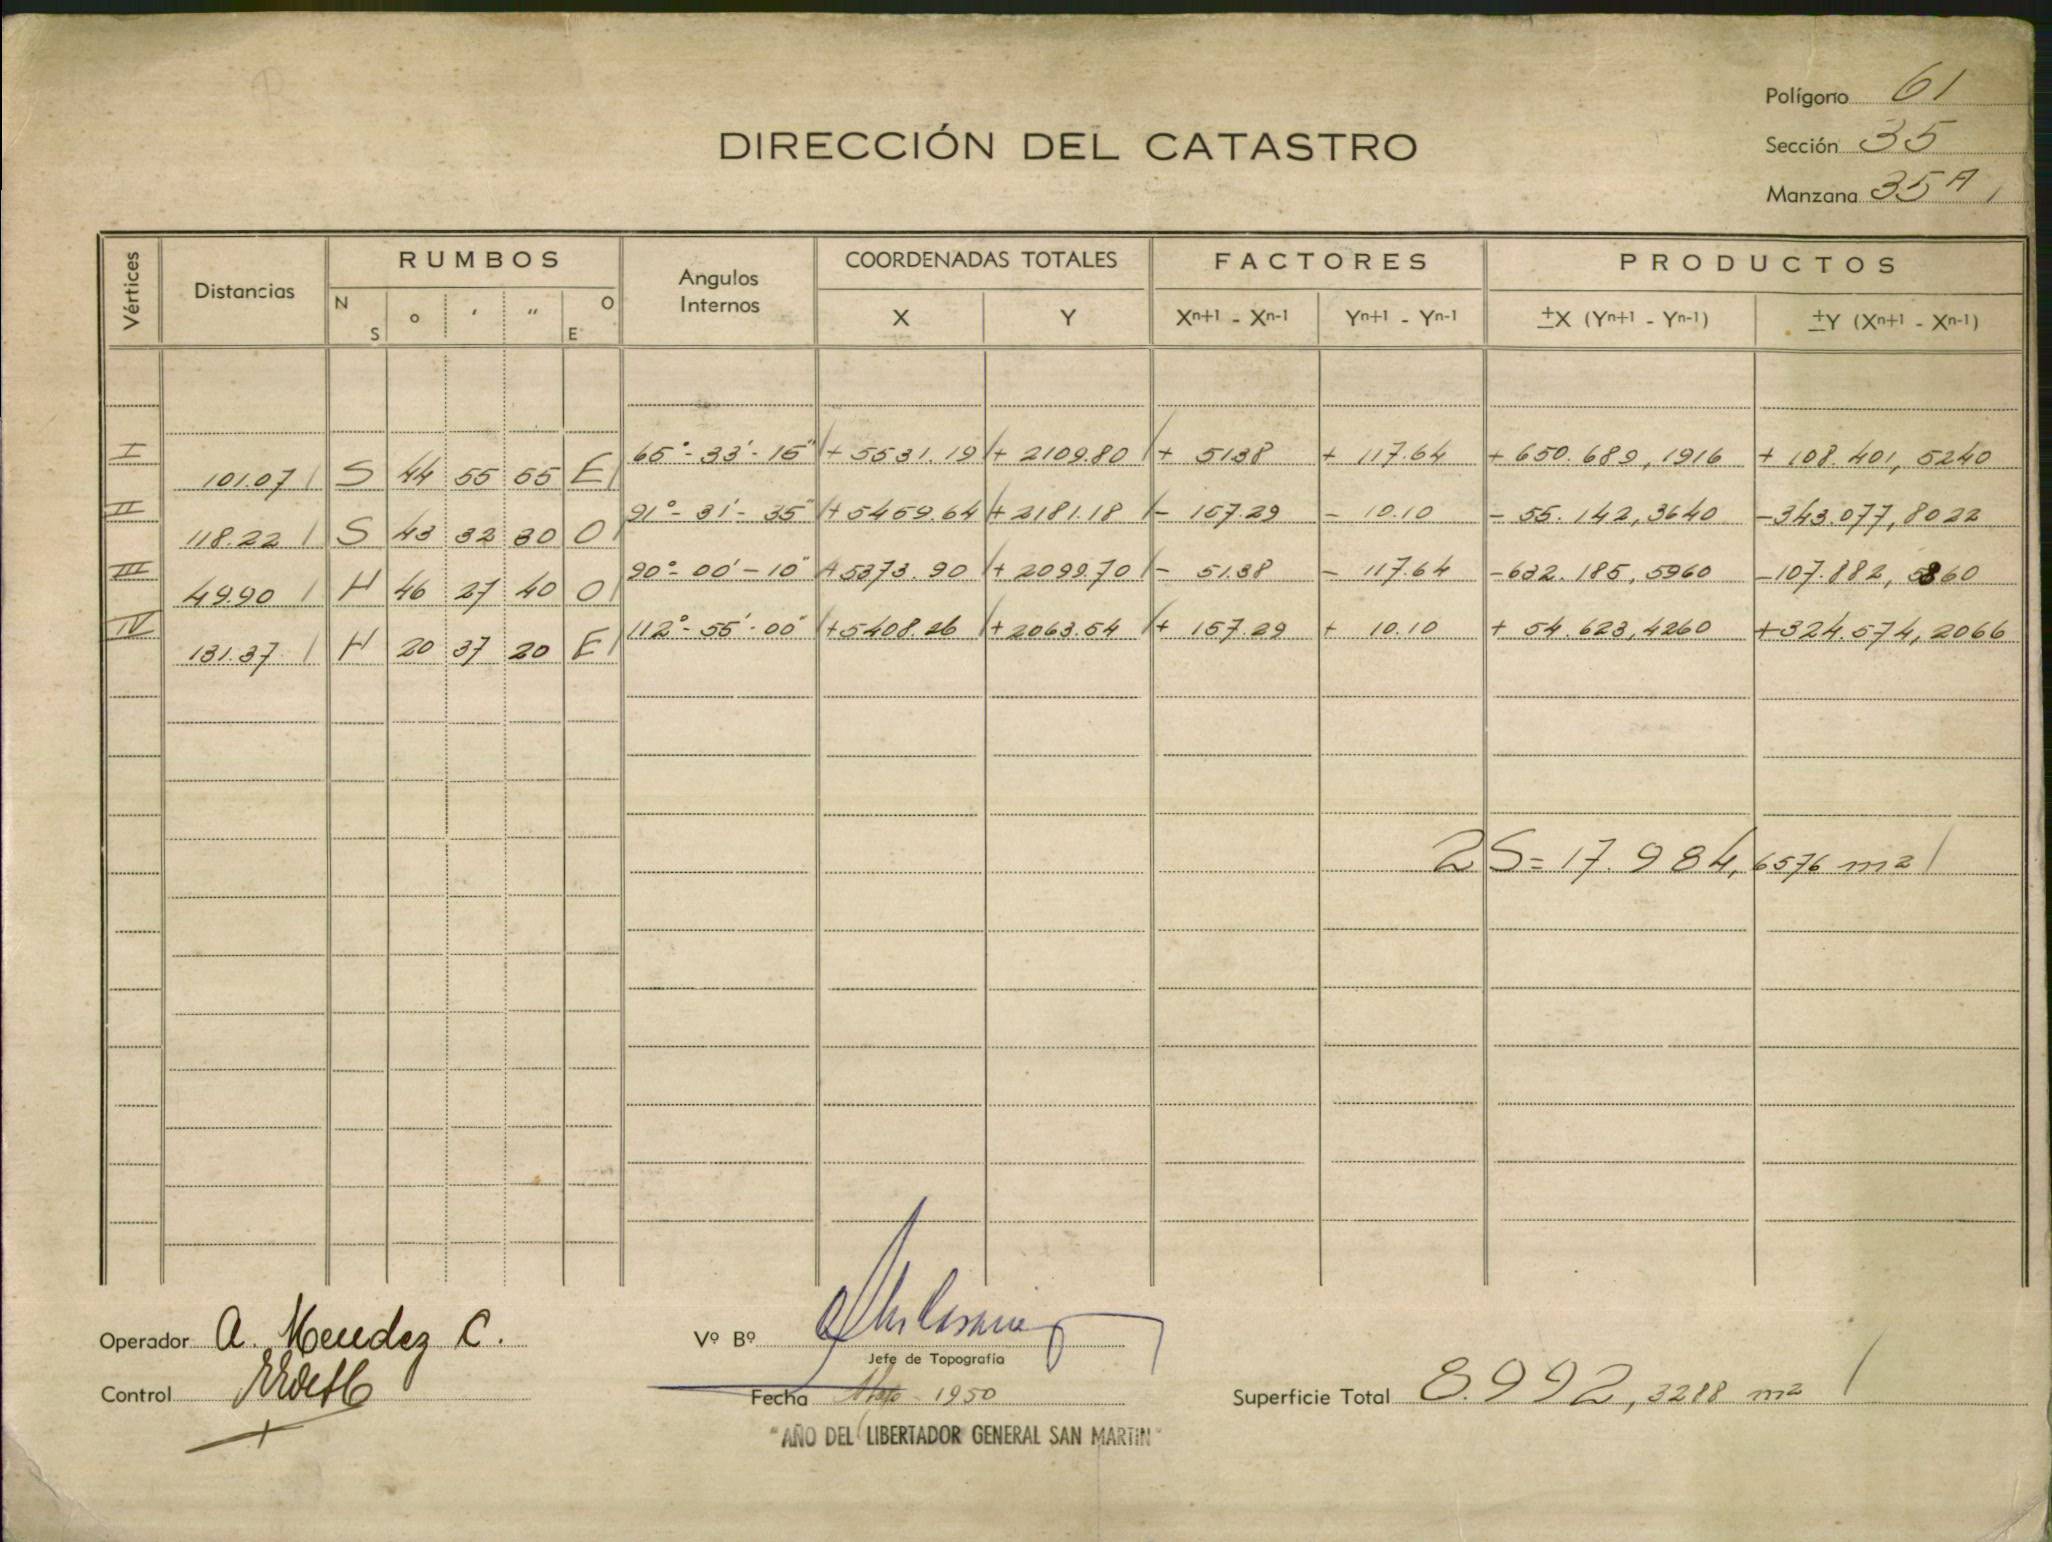 Polígono 61
DIRECCIÓN DEL CATASTRO
Sección 35
Manzana 35A
Vértices Distancias RUMBOS Angulos Internos COORDENADAS TOTALES FACTORES PRODUCTOS
N S o ' " O E X Y Xn+1 - Xn-1 Yn+1 - Yn-1 ±X (Yn+1 - Yn-1) ±Y (Xn+1 - Xn-1)
I 65°-33'-15" + 5531.19 + 2109.80 + 51.38 + 117.64 + 650.689,1916 + 108.401,5240
101.07 S 44 55 55 E
II 91°-31'-35" + 5459.64 + 2181.18 - 157.29 - 10.10 - 55.142,3640 - 343.077,8022
118.22 S 43 32 30 O
III 90°-00'-10" + 5373.90 + 2099.70 - 51.38 - 117.64 - 632.185,5960 - 107.882,5860
49.90 N 46 27 40 O
IV 112°-55'-00" + 5408.26 + 2063.54 + 157.29 + 10.10 + 54.623,4260 + 324.574,2066
131.37 N 20 37 20 E
2S = 17.984,6576 m2
Operador A. Mendez C. Vº Bº
Jefe de Topografía
Control Fecha 1950 Superficie Total 8.992,3288 m2
"AÑO DEL LIBERTADOR GENERAL SAN MARTIN"